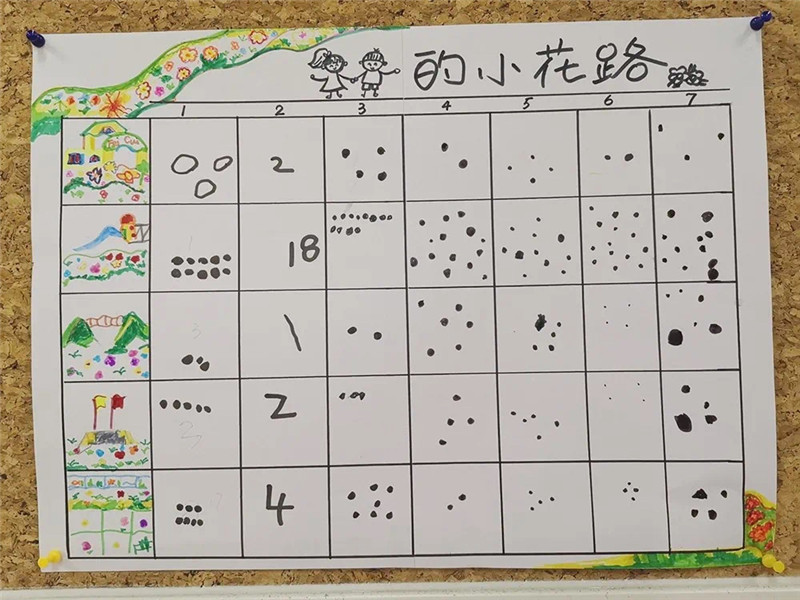 的小花路
1 2 3 4 5 6 7
2
18
1
2
4